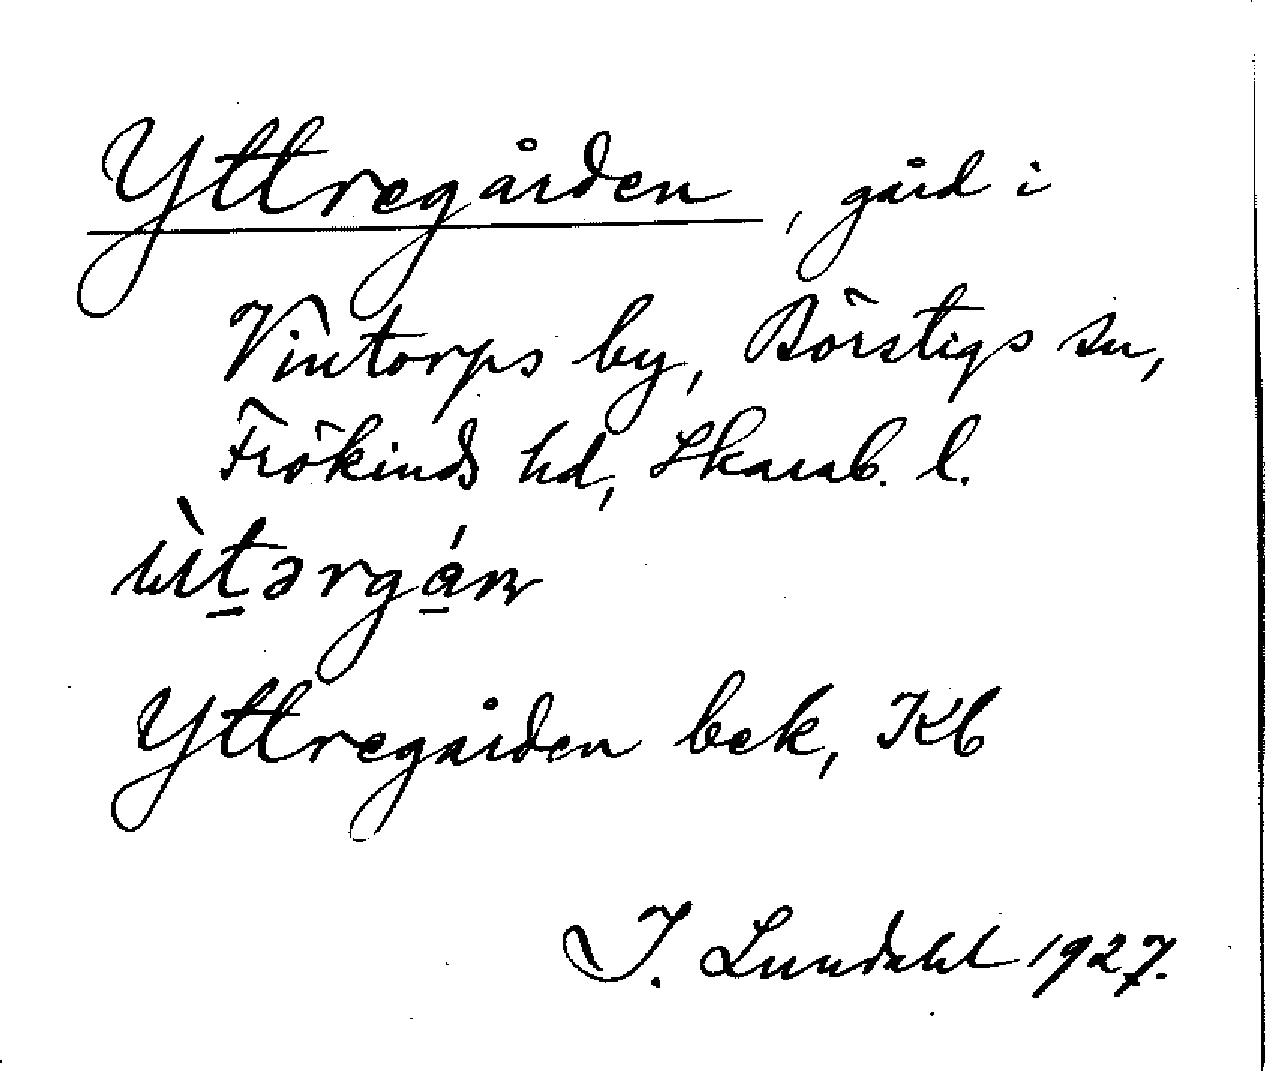 Yttregården, gård i
Vintorps by, Börstigs sn,
Frökinds hd, Skarab. l.
Yttregården bek, Kb
I. Lundahl 1927.